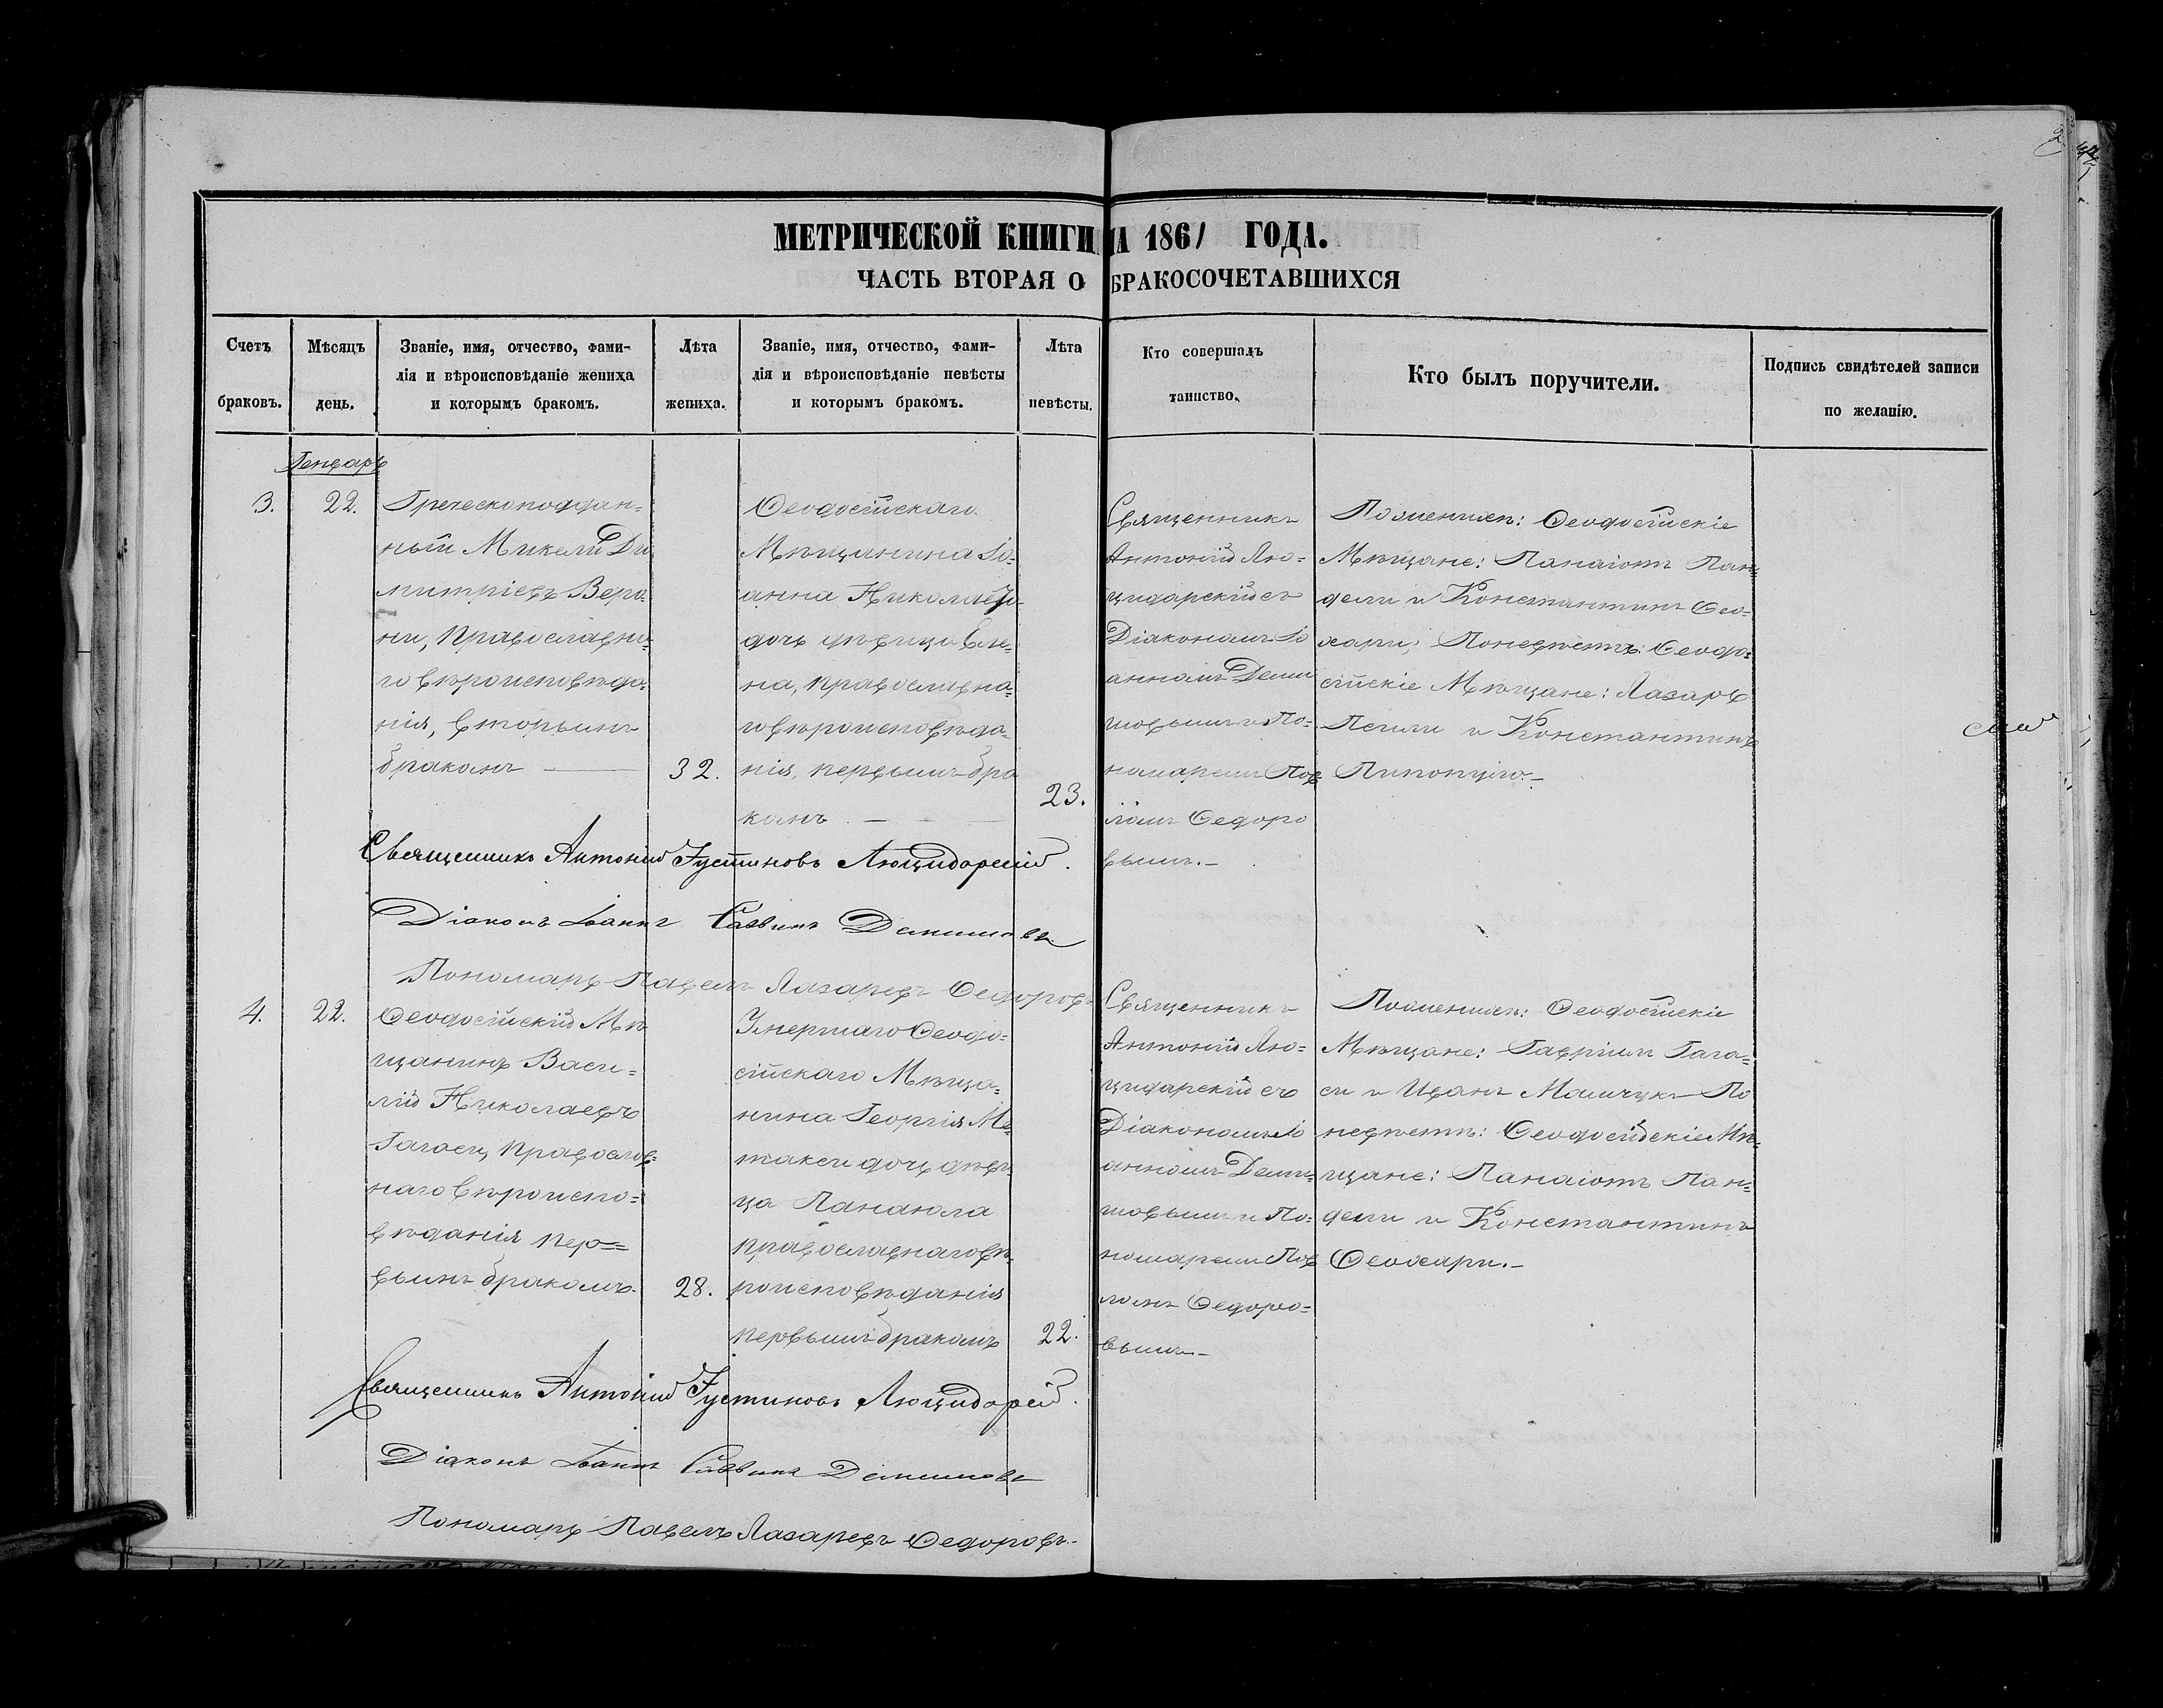 МЕТРИЧЕСКОЙ КНИГИ НА 1861 ГОДА.
ЧАСТЬ ВТОРАЯ О БРАКОСОЧЕТАВШИХСЯ
Счетъ браковъ.
Мѣсяцъ день.
Званіе, имя, отчество, фами-
лія и вѣроисповѣданіе жениха
и которымъ бракомъ.
Лѣта жениха.
Званіе, имя, отчество, фами-
лія и вѣроисповѣданіе невѣсты
и которымъ бракомъ.
Лѣта невѣсты.
Кто совершалъ
таинство.
Кто былъ поручители.
Подпись свидѣтелей записи
по желанію.
Генварь
3.
22.
Греческоподдан=
ный Микели Ди
митріевъ Вера-
ни, православна-
го вѣроисповѣда-
нія, вторымъ
бракомъ
32.
Ѳеодосійскаго
Мѣщанина Іо=
анна Николаева
дочь дѣвица Еле=
на, православна=
го вѣроисповѣда-
нія, первымъ бра
комъ. —
23.
Священникъ
Антоній Лю=
цидарскій съ
Діакономъ Іо
анномъ Деми
шовымъ и По-
номаремъ Пав
ломъ Ѳедоро
вымъ.—
По женихѣ: Ѳеодосійскіе
Мѣщане: Панаіотъ Пан=
дели и Константинъ Ѳео-
хари; По невѣстѣ: Ѳеодо=
сійскіе Мѣщане: Лазарь
и Константинъ
Священникъ Антоній Іустиновъ Люцидарскій.
Діаконъ Іоаннъ Саввинъ Демишовъ
Пономарь Павелъ Лазаревъ Ѳедоровъ
4.
22.
Ѳеодосійскій Мѣ
щанинъ Васи=
лій Николаевъ
Гагаси, православ=
наго вѣроиспо=
вѣданія пер=
вымъ бракомъ.
28.
Умершаго Ѳеодо=
сійскаго Мѣща=
нина Георгія Ме=
такси дочь дѣви
ца Панаюла
православнаго вѣ-
роисповѣданія
первымъ бракомъ
22.
Священникъ
Антоній Лю=
цидарскій съ
Діакономъ Іо
анномъ Деми=
шовымъ и По=
номаремъ Пав
ломъ Ѳедоро=
вымъ—
По женихѣ: Ѳеодосійскіе
Мѣщане: Гавріилъ Гага=
си и Иванъ Мамчук По
невѣстѣ: Ѳеодосійскіе Мѣ=
щане: Панаіотъ Пан=
дели и Константинъ
Ѳеохари.—
Священникъ Антоній Іустиновъ Люцидарскій.
Діаконъ Іоаннъ Саввинъ Демишовъ
Пономарь Павелъ Лазаревъ Ѳедоровъ.